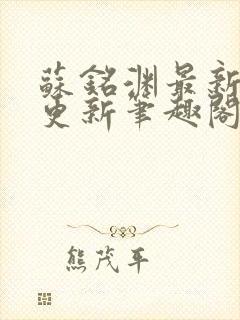 蘇銘淵最新
更新筆趣閣
熊茂平